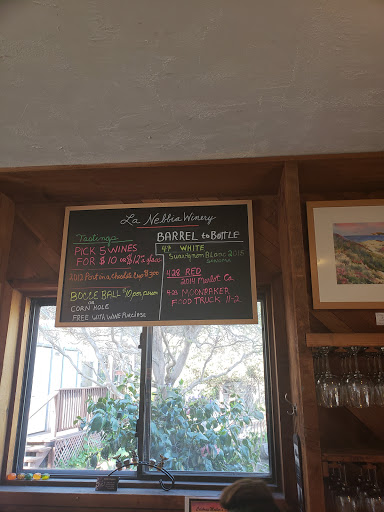 La Nebbia Winery
Tastings
PICK 5 WINES
FOR $10 or $12
2012 Port in a Chocolate Cup
BOCCE BALL $10 per person
OR
CORN HOLE
FREE WITH WINE Purchase
BARREL to Bottle
WHITE
Sauvignon Blanc 2015
RED
2014 Merlot Ca.
MOONRAKER
FOOD TRUCK 11-2